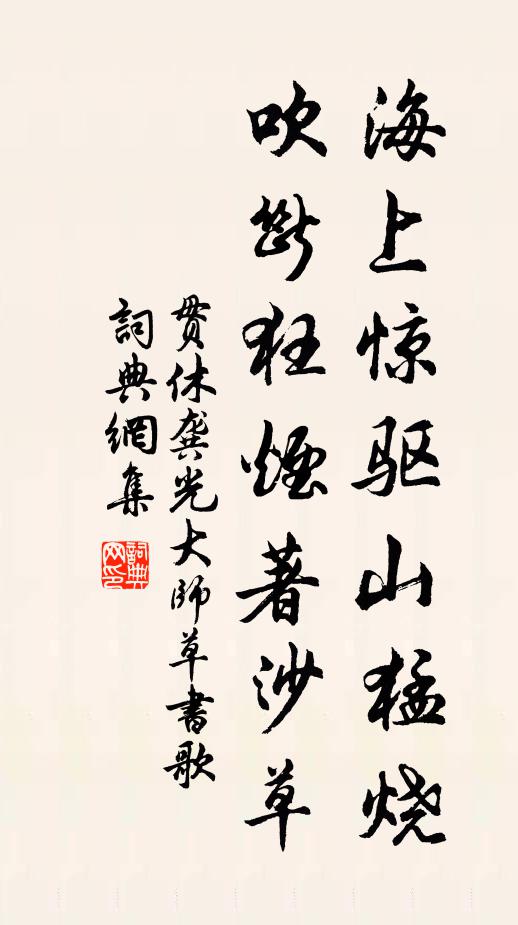 海上惊驱山猛烧
吹斷狂煙著沙草
贯休龔光大师草書歌
詞典網集
詞典網印